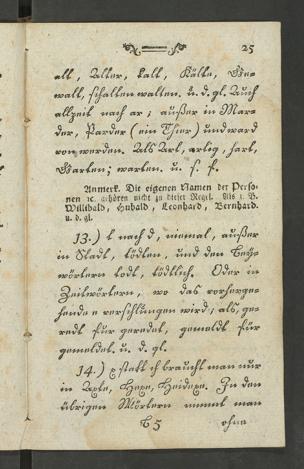 25
alt, Alter, kalt, Kälte, Ge-
walt, schalten walten. u. d. gl. Auch
allzeit nach ar; außer in Mar-
der, Parder (ein Thier) und ward
von werden. Als Art, artig, hart,
Garten; warten. u. s. f.
Anmerk. Die eigenen Namen der Perso-
nen ꝛc. gehören nicht zu dieser Regel. Als z. B.
Willibald, Hubald, Leonhard, Bernhard.
u. d. gl.
13.) t nach d, niemal, außer
in Stadt, tödten, und den Bey-
wörtern todt, tödtlich. Oder in
Zeitwörtern, wo das vorherge-
hende e verschlungen wird; als, ge-
redt für geredet, gemeldt für
gemeldet. u. d. gl.
14.) x statt chs braucht man nur
in Axt, Hexe, Heidexe. In den
übrigen Wörtern nimmt man
B 5 ohne